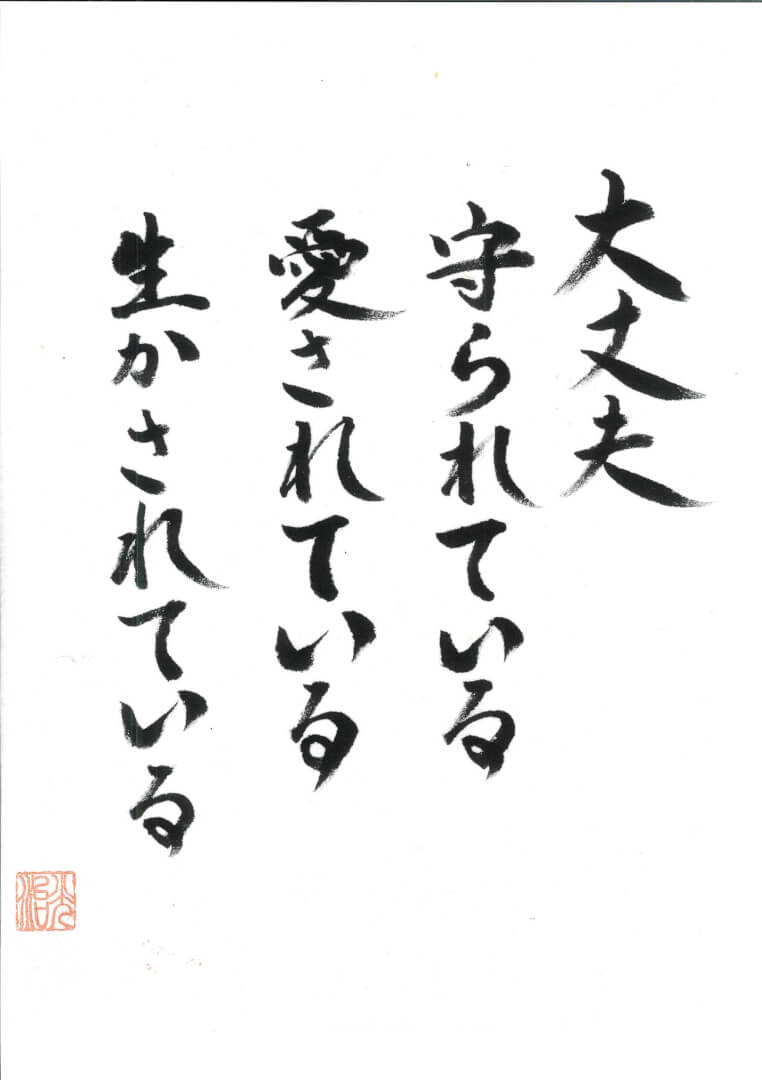 大丈夫
守られている
愛されている
生かされている